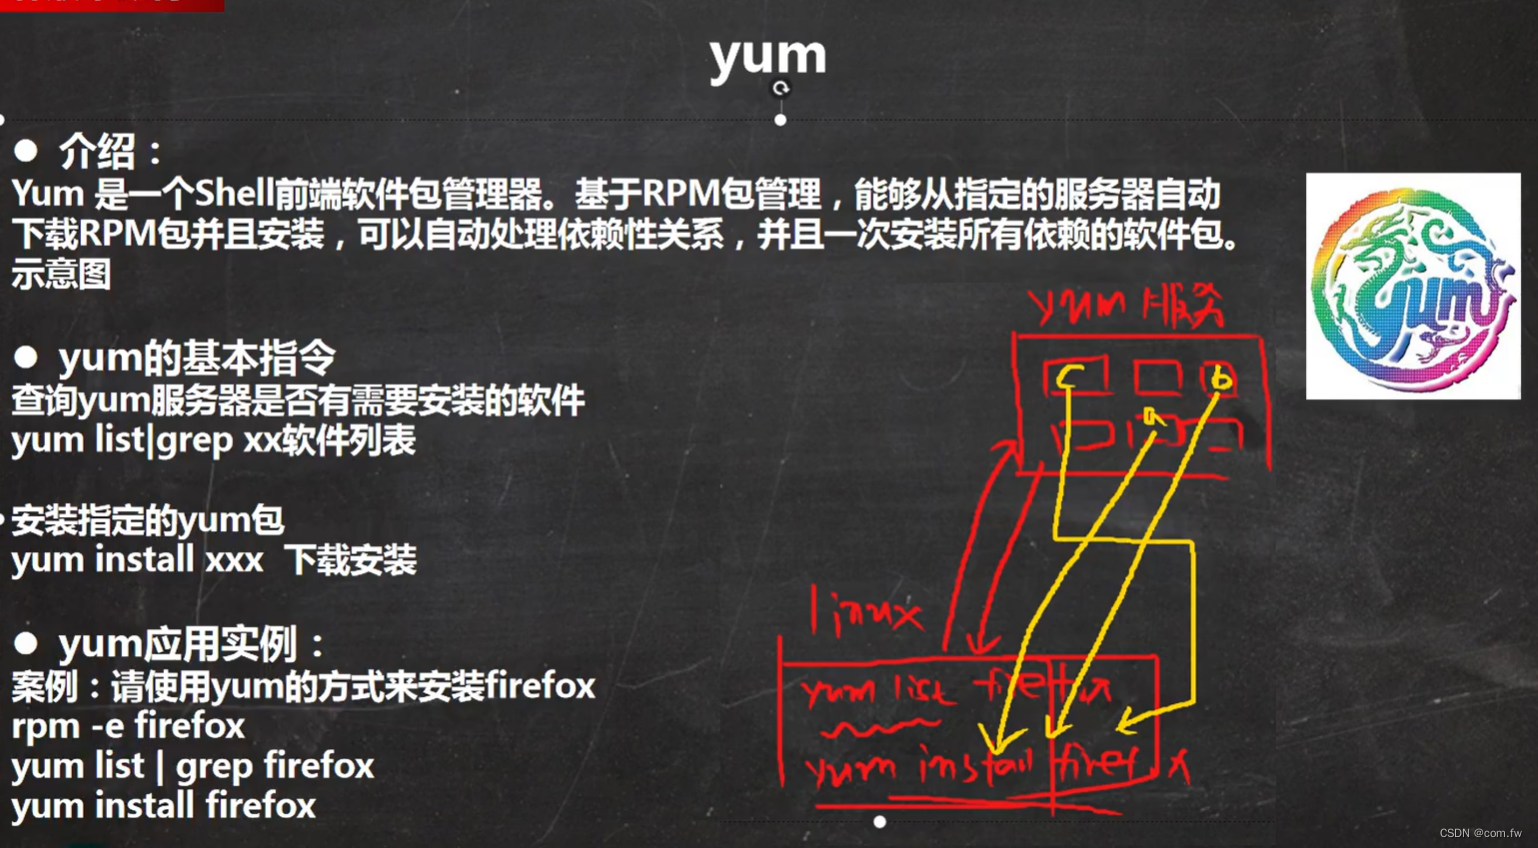 yum
● 介绍：
Yum 是一个Shell前端软件包管理器。基于RPM包管理，能够从指定的服务器自动
下载RPM包并且安装，可以自动处理依赖性关系，并且一次安装所有依赖的软件包。
示意图
yum
yum 服务
c
b
a
● yum的基本指令
查询yum服务器是否有需要安装的软件
yum list|grep xx软件列表
安装指定的yum包
yum install xxx 下载安装
linux
yum list firefox
yum install firefox
● yum应用实例：
案例：请使用yum的方式来安装firefox
rpm -e firefox
yum list | grep firefox
yum install firefox
CSDN @com.fw